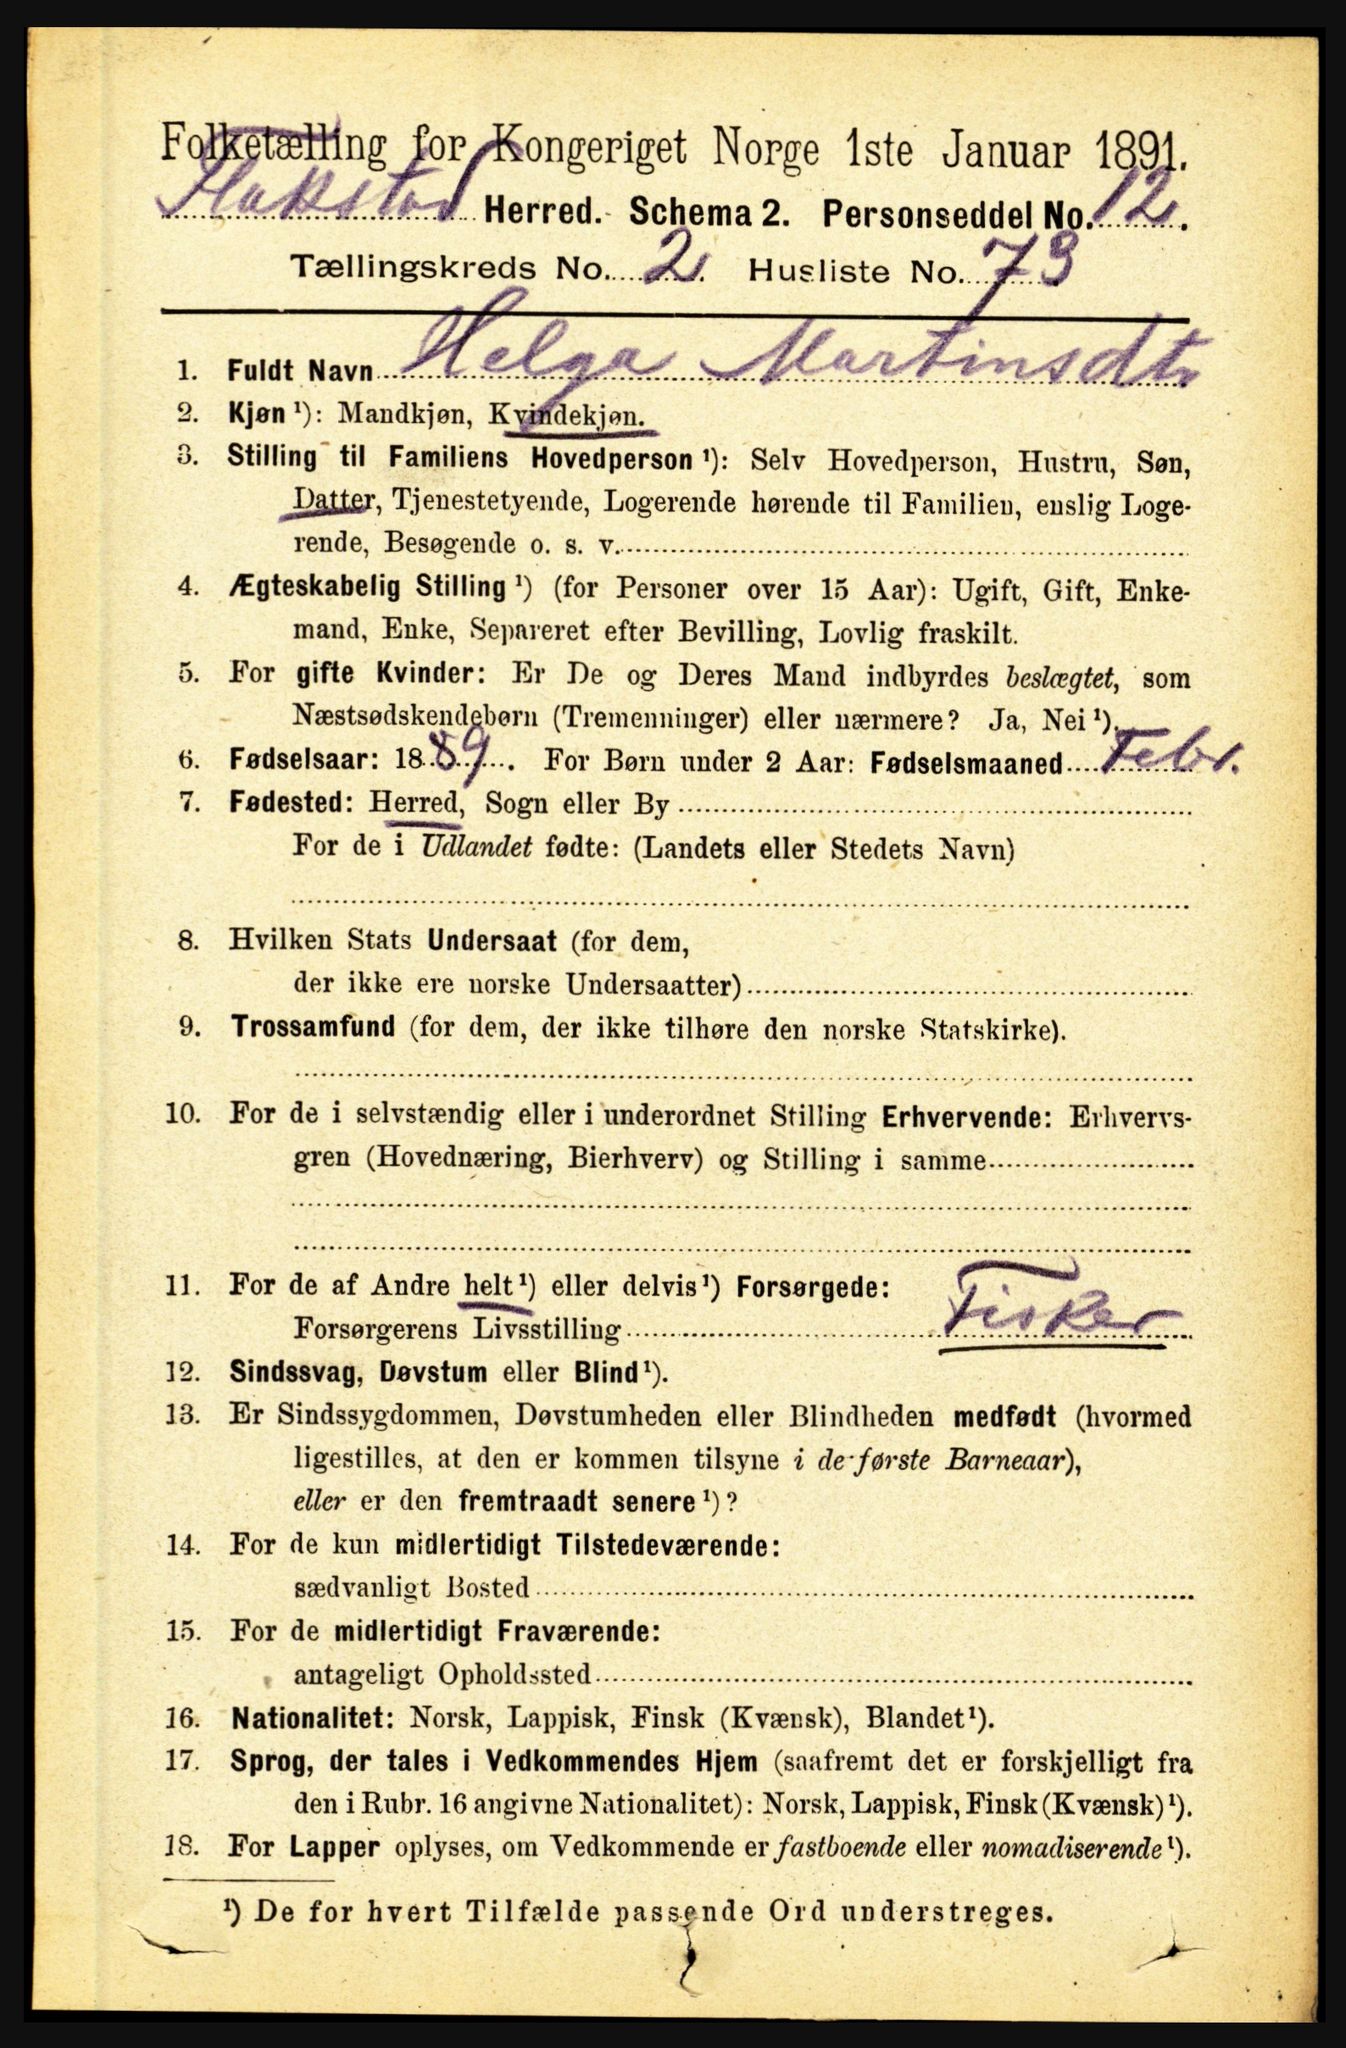 Folketælling for Kongeriget Norge 1ste Januar 1891.
Flakstad Herred. Schema 2. Personseddel No. 12.
Tællingskreds No. 2. Husliste No. 73
1. Fuldt Navn Helga Martinsdtr
2. Kjøn ¹): Mandkjøn, Kvindekjøn.
3. Stilling til Familiens Hovedperson ¹): Selv Hovedperson, Hustru, Søn,
Datter, Tjenestetyende, Logerende hørende til Familien, enslig Loge-
rende, Besøgende o. s. v.
4. Ægteskabelig Stilling ¹) (for Personer over 15 Aar): Ugift, Gift, Enke-
mand, Enke, Separeret efter Bevilling, Lovlig fraskilt.
5. For gifte Kvinder: Er De og Deres Mand indbyrdes beslægtet, som
Næstsødskendebørn (Tremenninger) eller nærmere? Ja, Nei ¹).
6. Fødselsaar: 1889. For Børn under 2 Aar: Fødselsmaaned Febr.
7. Fødested: Herred, Sogn eller By
For de i Udlandet fødte: (Landets eller Stedets Navn)
8. Hvilken Stats Undersaat (for dem,
der ikke ere norske Undersaatter)
9. Trossamfund (for dem, der ikke tilhøre den norske Statskirke).
10. For de i selvstændig eller i underordnet Stilling Erhvervende: Erhvervs-
gren (Hovednæring, Bierhverv) og Stilling i samme
11. For de af Andre helt ¹) eller delvis ¹) Forsørgede:
Forsørgerens Livsstilling Fisker
12. Sindssvag, Døvstum eller Blind ¹).
13. Er Sindssygdommen, Døvstumheden eller Blindheden medfødt (hvormed
ligestilles, at den er kommen tilsyne i de første Barneaar),
eller er den fremtraadt senere ¹)?
14. For de kun midlertidigt Tilstedeværende:
sædvanligt Bosted
15. For de midlertidigt Fraværende:
antageligt Opholdssted
16. Nationalitet: Norsk, Lappisk, Finsk (Kvænsk), Blandet ¹).
17. Sprog, der tales i Vedkommendes Hjem (saafremt det er forskjelligt fra
den i Rubr. 16 angivne Nationalitet): Norsk, Lappisk, Finsk (Kvænsk) ¹).
18. For Lapper oplyses, om Vedkommende er fastboende eller nomadiserende ¹).
¹) De for hvert Tilfælde passende Ord understreges.